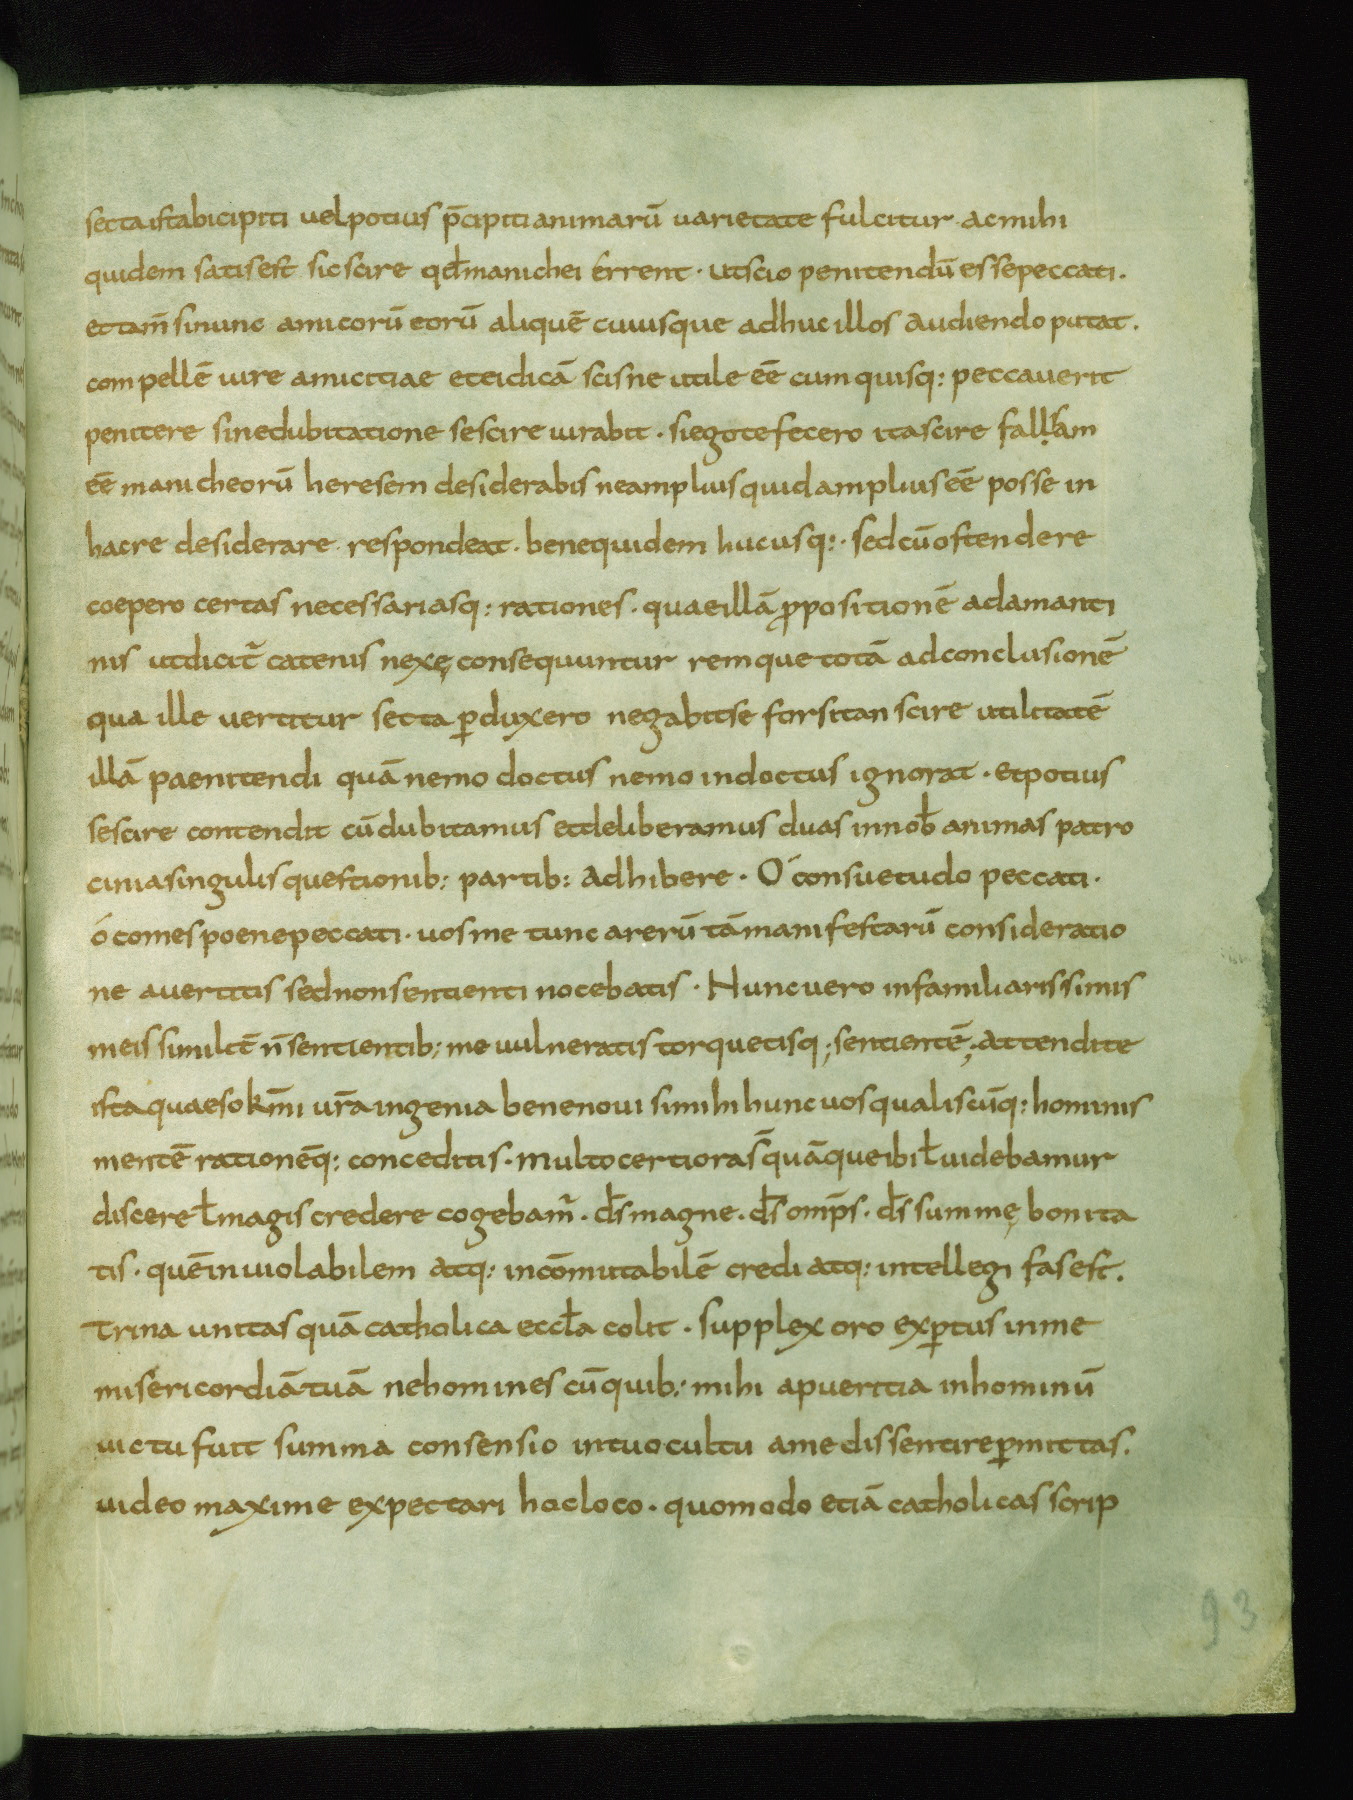 secta ista bicipiti uel potius p̄cipiti animarū uarietate fulcitur ac mihi
quidem satis est sic scire qđ manichei errent · ut scio penitendū esse peccati.
et tam̄ si nunc amicorū eorū aliquē cuiusque adhuc illos audiendo putat.
compellē iure amicitiae et ei dicā scisne utile eē cum quisq: peccauerit
penitere sine dubitatione se scire iurabit · si ego te fecero ita scire fallsam
eē manicheorū heresem desiderabis ne amplius quid amplius eē posse in
hac re desiderare respondeat · bene quidem hucusq: · sed cū ostendere
coepero certas necessariasq: rationes · quae illā ꝓpositionē adamanti
nis ut dicit̄ catenis nexę consequuntur remque totā ad conclusionē
qua ille uertitur secta ꝑduxero negabit se forsitan scire utilitatē
illā paenitendi quā nemo doctus nemo indoctus ignorat · et potius
se scire contendit cū dubitamus et deliberamus duas in nob̄ animas patro
cinia singulis questionib: partib: adhibere · Ó consuetudo peccati ·
ó comes poene peccati · uos me tunc a rerū tā manifestarū consideratio
ne auertitis sed non sentienti nocebatis · Nunc uero in familiarissimis
meis similit̄ n̄ sentientib; me uulneratis torquetisq; sentientē; attendite
ista quaeso km̄i ur̄a ingenia bene noui si mihi hunc uos qualiscūq: hominis
mentē rationēq: conceditis · multo certiora s̄ quā que ibi ł uidebamur
discere ł magis credere cogebam̄ · ds̄ magne · ds̄ omp̄s · ds̄ summę bonita
tis · quē inuiolabilem atq: incōmutabilē credi atq: intellegi fas est.
trina unitas quā catholica eccła colit · supplex oro exꝑtus in me
misericordiā tuā ne homines cū quib: mihi a pueritia in hominū
uictu fuit summa consensio in tuo cultu a me dissentire ꝑmittas.
uideo maxime expectari hoc loco · quomodo etiā catholicas scrip
93